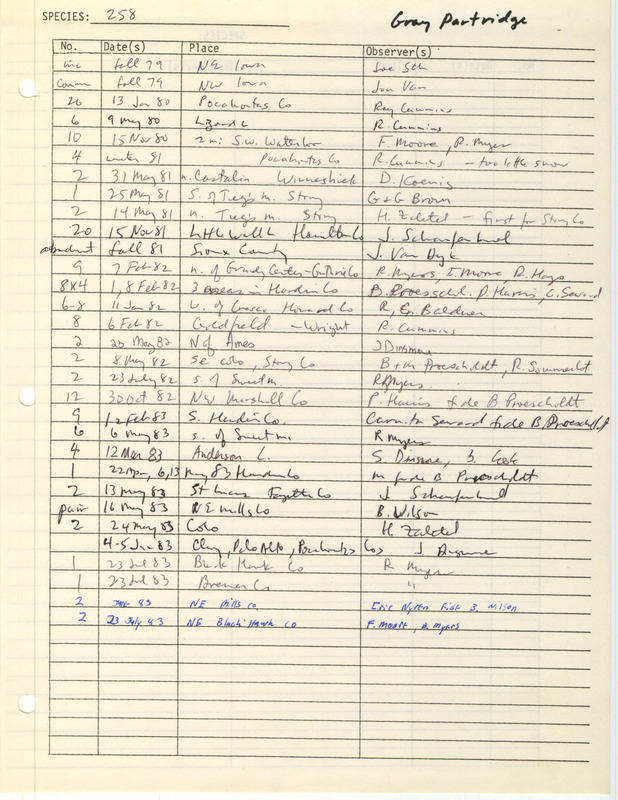 SPECIES: 258 Gray Partridge
No. Date(s) Place Observer(s)
inc fall 79 NE Iowa
fall 79 NW Iowa Jon Van
20 13 Jan 80 Pocahontas Co Ray Cummins
6 9 May 80 Lizard L R. Cummins
10 15 Nov 80 2 mi S.W. Waterloo F. Moore, R. Myers
4 winter 81 Pocahontas Co R. Cummins - too little snow
2 31 May 81 n. Castalia Winneshiek D. Koenig
1 25 May 81 S. of Story G & G Brown
2 14 May 81 n. Story H. Zaletel - first for Story Co
20 15 Nov 81 Little Wall L Hamilton Co J. Schaufenbuel
abundant fall 81 Sioux County J. Van Dyk
9 7 Feb 82 n. of Grundy Center - Guthrie Co R. Myers, F. Moore, D. Hays
8x4 1, 8 Feb 82 3 areas in Hardin Co B. Proescholdt, P. Harris, C. Savard
6-8 11 Jan 82 W. of Cresco Howard Co R, G. Baldner
8 6 Feb 82 Goldfield - Wright R. Cummins
2 23 May 82 N of Ames J Dinsmore
2 8 May 82 SE Colo, Story Co B + M Proescholdt, R. Sommerlot
2 23 July 82 S. of Sweet m. R Myers
12 30 Oct 82 NW Marshall Co P. Harris fide B. Proescholdt
9 12 Feb 83 S. Hardin Co. Carmita Savard fide B. Proescholdt
6 6 May 83 S. of Sweet m. R Myers
4 12 Mar 83 Anderson L. S. Dinsmore,
1 22 Apr, 6, 13 May 83 Hardin Co m fide B Proescholdt
2 13 May 83 Fayette Co J Schaufenbuel
pair 16 May 83 NE Mills Co B. Wilson
2 24 May 83 Colo H. Zaletel
4-5 Jun 83 Clay, Palo Alto, Pocahontas Cos J Dinsmore
1 23 Jul 83 Black Hawk Co R Myers
1 23 Jul 83 Bremer Co "
2 83 NE Mills co. Eric Nyren Fide B. Wilson
2 23 July 83 NE Black Hawk co F. Moore, R. Myers